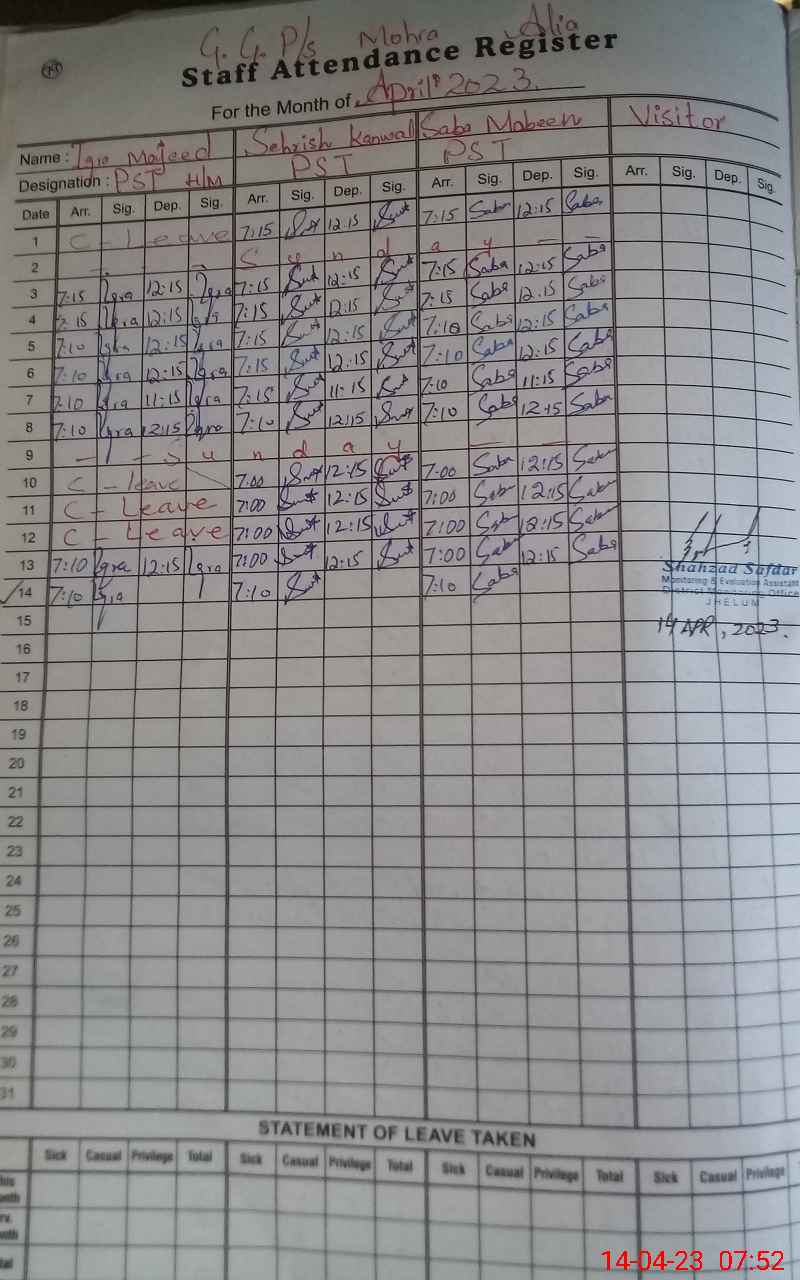 G. G. P/s Mohra Alia
Staff Attendance Register
For the Month of April 2023.
Name : Iqra Majeed Sehrish Kanwal Saba Mabeen Visitor
Designation : PST H/M PST PST
Date Arr. Sig. Dep. Sig. Arr. Sig. Dep. Sig. Arr. Sig. Dep. Sig. Arr. Sig. Dep. Sig.
1 C - Leave 7:15 12:15 7:15 Saba 12:15 Saba
2 - - S u n d a y - -
3 7:15 Iqra 12:15 Iqra 7:15 12:15 7:15 Saba 12:15 Saba
4 7:15 Iqra 12:15 Iqra 7:15 12:15 7:15 Saba 12:15 Saba
5 7:10 Iqra 12:15 Iqra 7:15 12:15 7:10 Saba 12:15 Saba
6 7:10 Iqra 12:15 Iqra 7:15 12:15 7:10 Saba 12:15 Saba
7 7:10 Iqra 11:15 Iqra 7:15 11:15 7:10 Saba 11:15 Saba
8 7:10 Iqra 12:15 Iqra 7:10 12:15 7:10 Saba 12:15 Saba
9 - - S u n d a y - -
10 C - leave 7:00 12:15 7:00 Saba 12:15 Saba
11 C - Leave 7:00 12:15 7:00 Saba 12:15 Saba
12 C - Leave 7:00 12:15 7:00 Saba 12:15 Saba
13 7:10 Iqra 12:15 Iqra 7:00 12:15 7:00 Saba 12:15 Saba
14 7:10 Iqra 7:10 7:10 Saba
Shahzad Safdar
Monitoring & Evaluation Assistant
District Monitoring Office
JHELUM
14 APR, 2023.
15
16
17
18
19
20
21
22
23
24
25
26
27
28
29
30
31
STATEMENT OF LEAVE TAKEN
Sick Casual Privilege Total Sick Casual Privilege Total Sick Casual Privilege Total Sick Casual Privilege
14-04-23 07:52